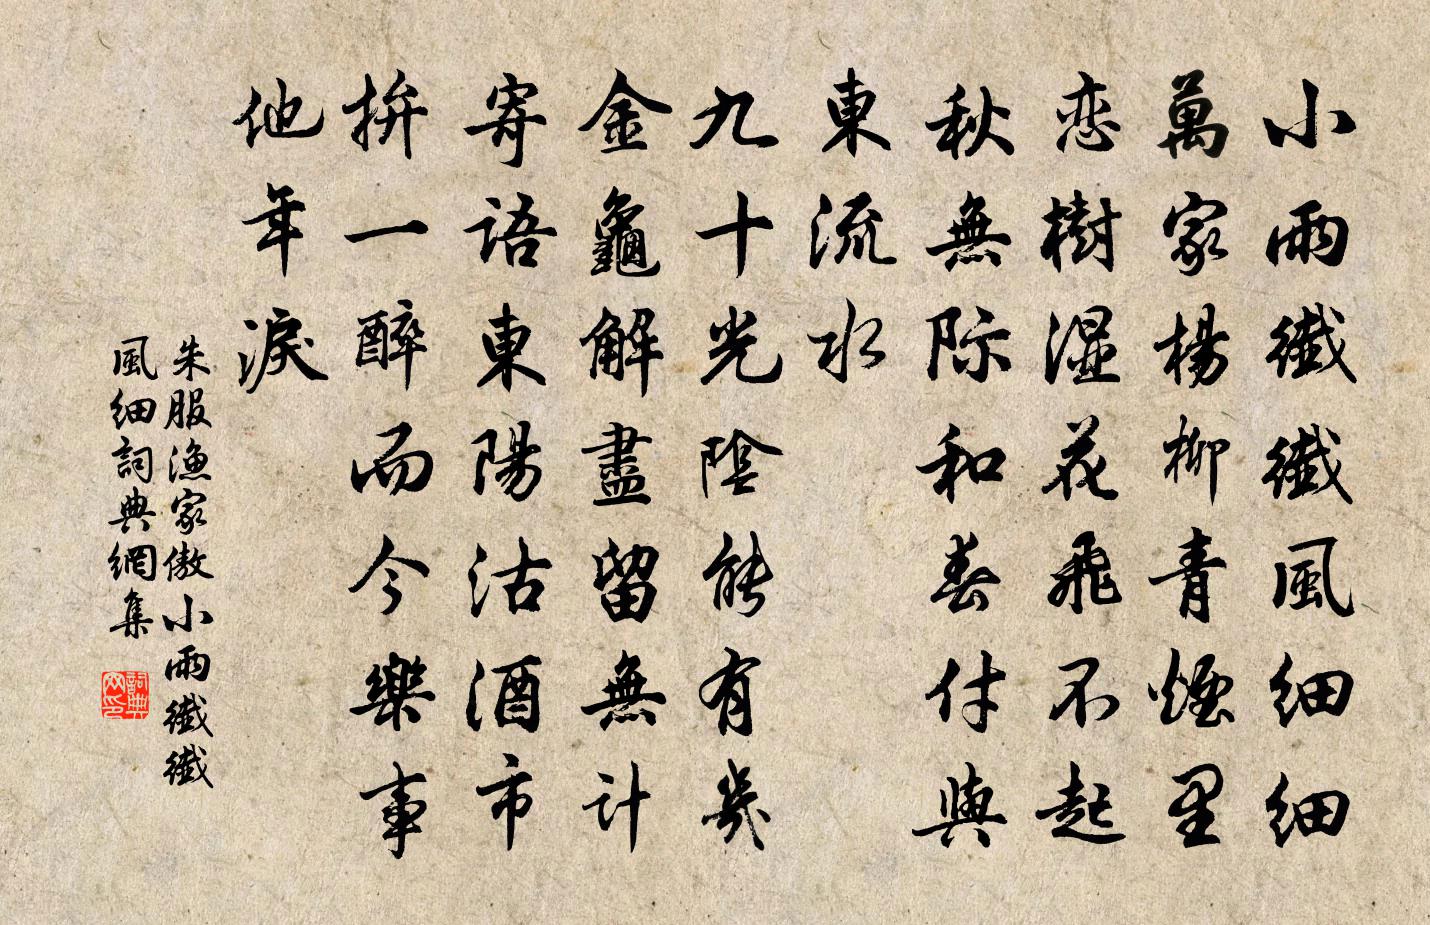 小雨纖纖風細細
萬家楊柳青煙里
恋樹湿花飛不起
秋無际和春付與
東流水
九十光陰能有幾
金龜解盡留無計
寄語東陽沽酒市
拚一醉而今樂事
他年淚
朱服漁家傲小雨纖纖
風細詞典網集
詞典網印